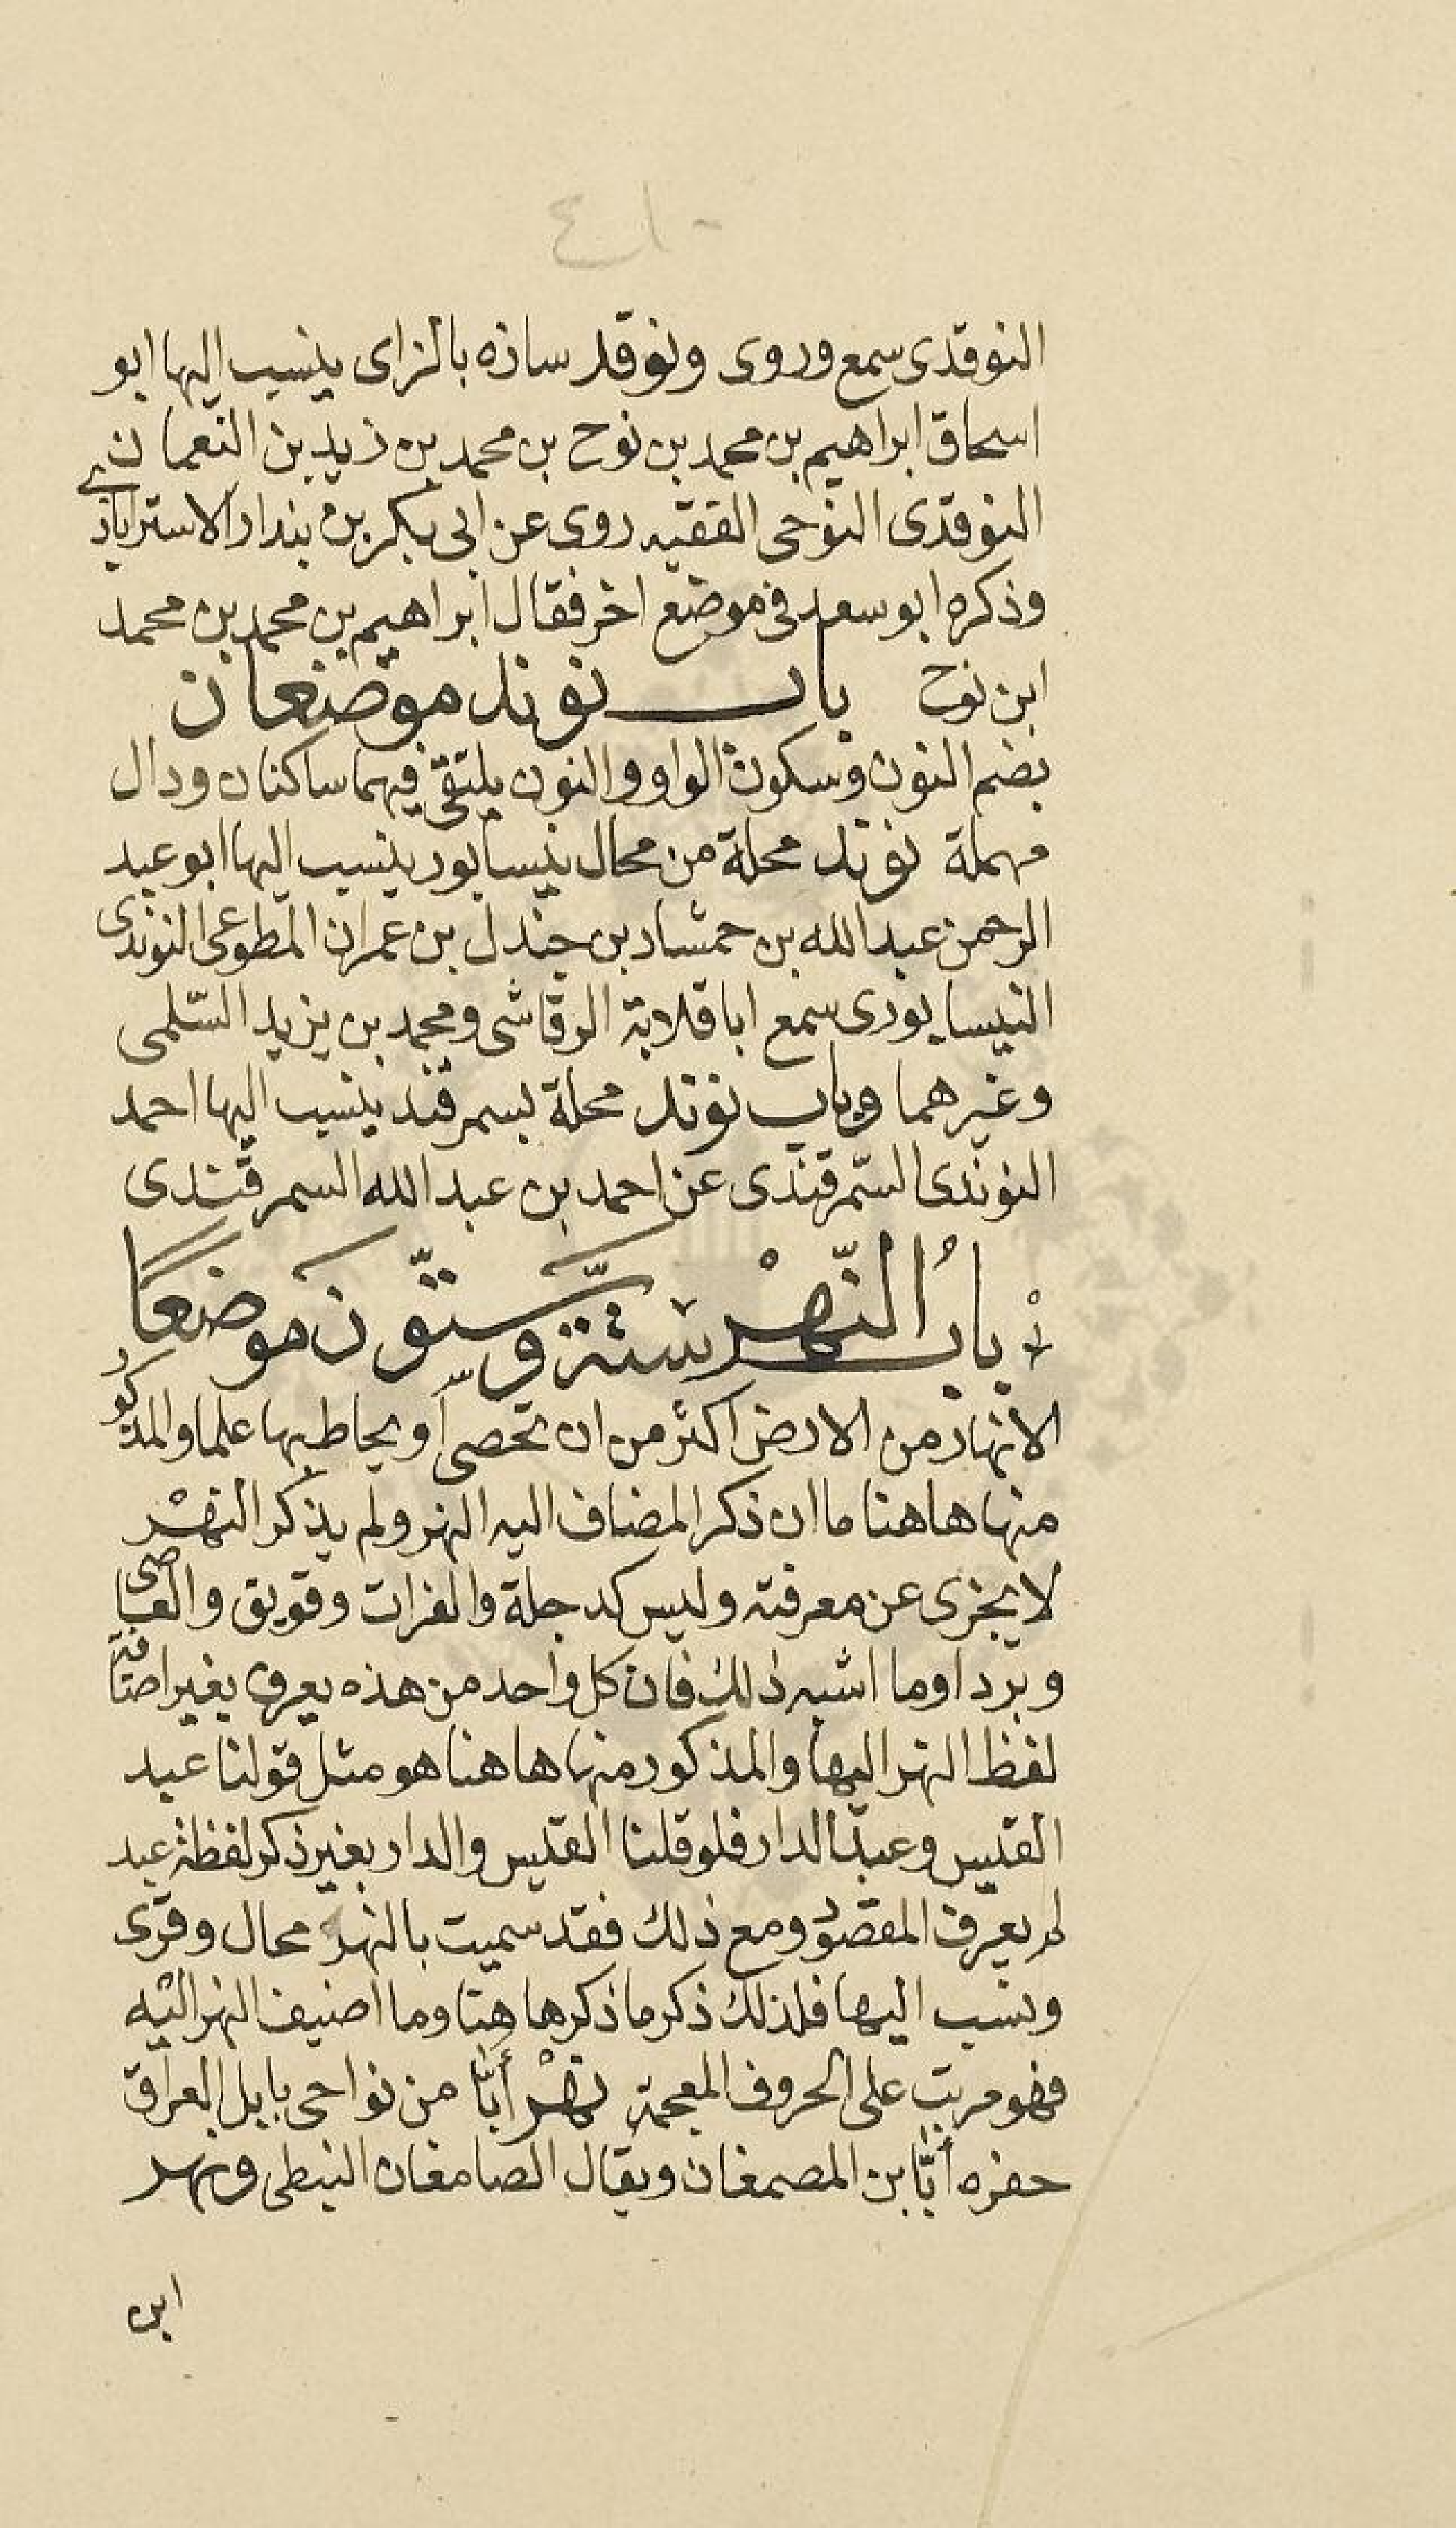 ٤١٠
النوقدى سمع وروى ونوقد سازه بالزاى ينسب اليها ابو
اسحاق ابراهيم بن محمد بن نوح بن محمد بن زيد بن النعمان
النوقدى النوحى الفقيه روى عن ابى بكر بن بندار الاستراباذى
وذكره ابو سعد فى موضع اخر فقال ابراهيم بن محمد بن محمد
ابن نوح باب نوند موضعان
بضم النون وسكون الواو والنون يلتقى فيهما ساكنان ودال
مهملة نوند محلة من محال نيسابور ينسب اليها ابو عبد
الرحمن عبد الله بن حمشاد بن جندل بن عمران المطوعى النوندى
النيسابورى سمع ابا قلابة الرقاشى ومحمد بن يزيد السّلمى
وغيرهما وباب نوند محلة بسمرقند ينسب اليها احمد
النوندى السّمرقندى عن احمد بن عبد الله السمرقندى
بابُ النّهْر ستة وستّون موضعًا
الانهار من الارض اكثر من ان تحصى أو يحاط بها علما والمذكور
منها هاهنا ما ان ذكر المضاف اليه النهر ولم يذكر النهْر
لا يجزى عن معرفته وليس كدجلة والفرات وقويق والعاصى
وبردا وما اشبه ذلك فان كل واحد من هذه يعرف بغير اضافة
لفظ النهر اليها والمذكور منها هاهنا هو مثل قولنا عبد
القيس وعبد الدار فلو قلنا القيس والدار بغير ذكر لفظة عبد
لم يعرف المقصود ومع ذلك فقد سميت بالنهر محال وقرى
ونسب اليها فلذلك ذكر ما ذكر هاهنا وما اضيف النهر اليه
فهو مرتب على الحروف المعجمة نهْر أبّا من نواحى بابل العراق
حفره أبّا بن المصمغان ويقال الصامغان النبطى ونهر
ابن